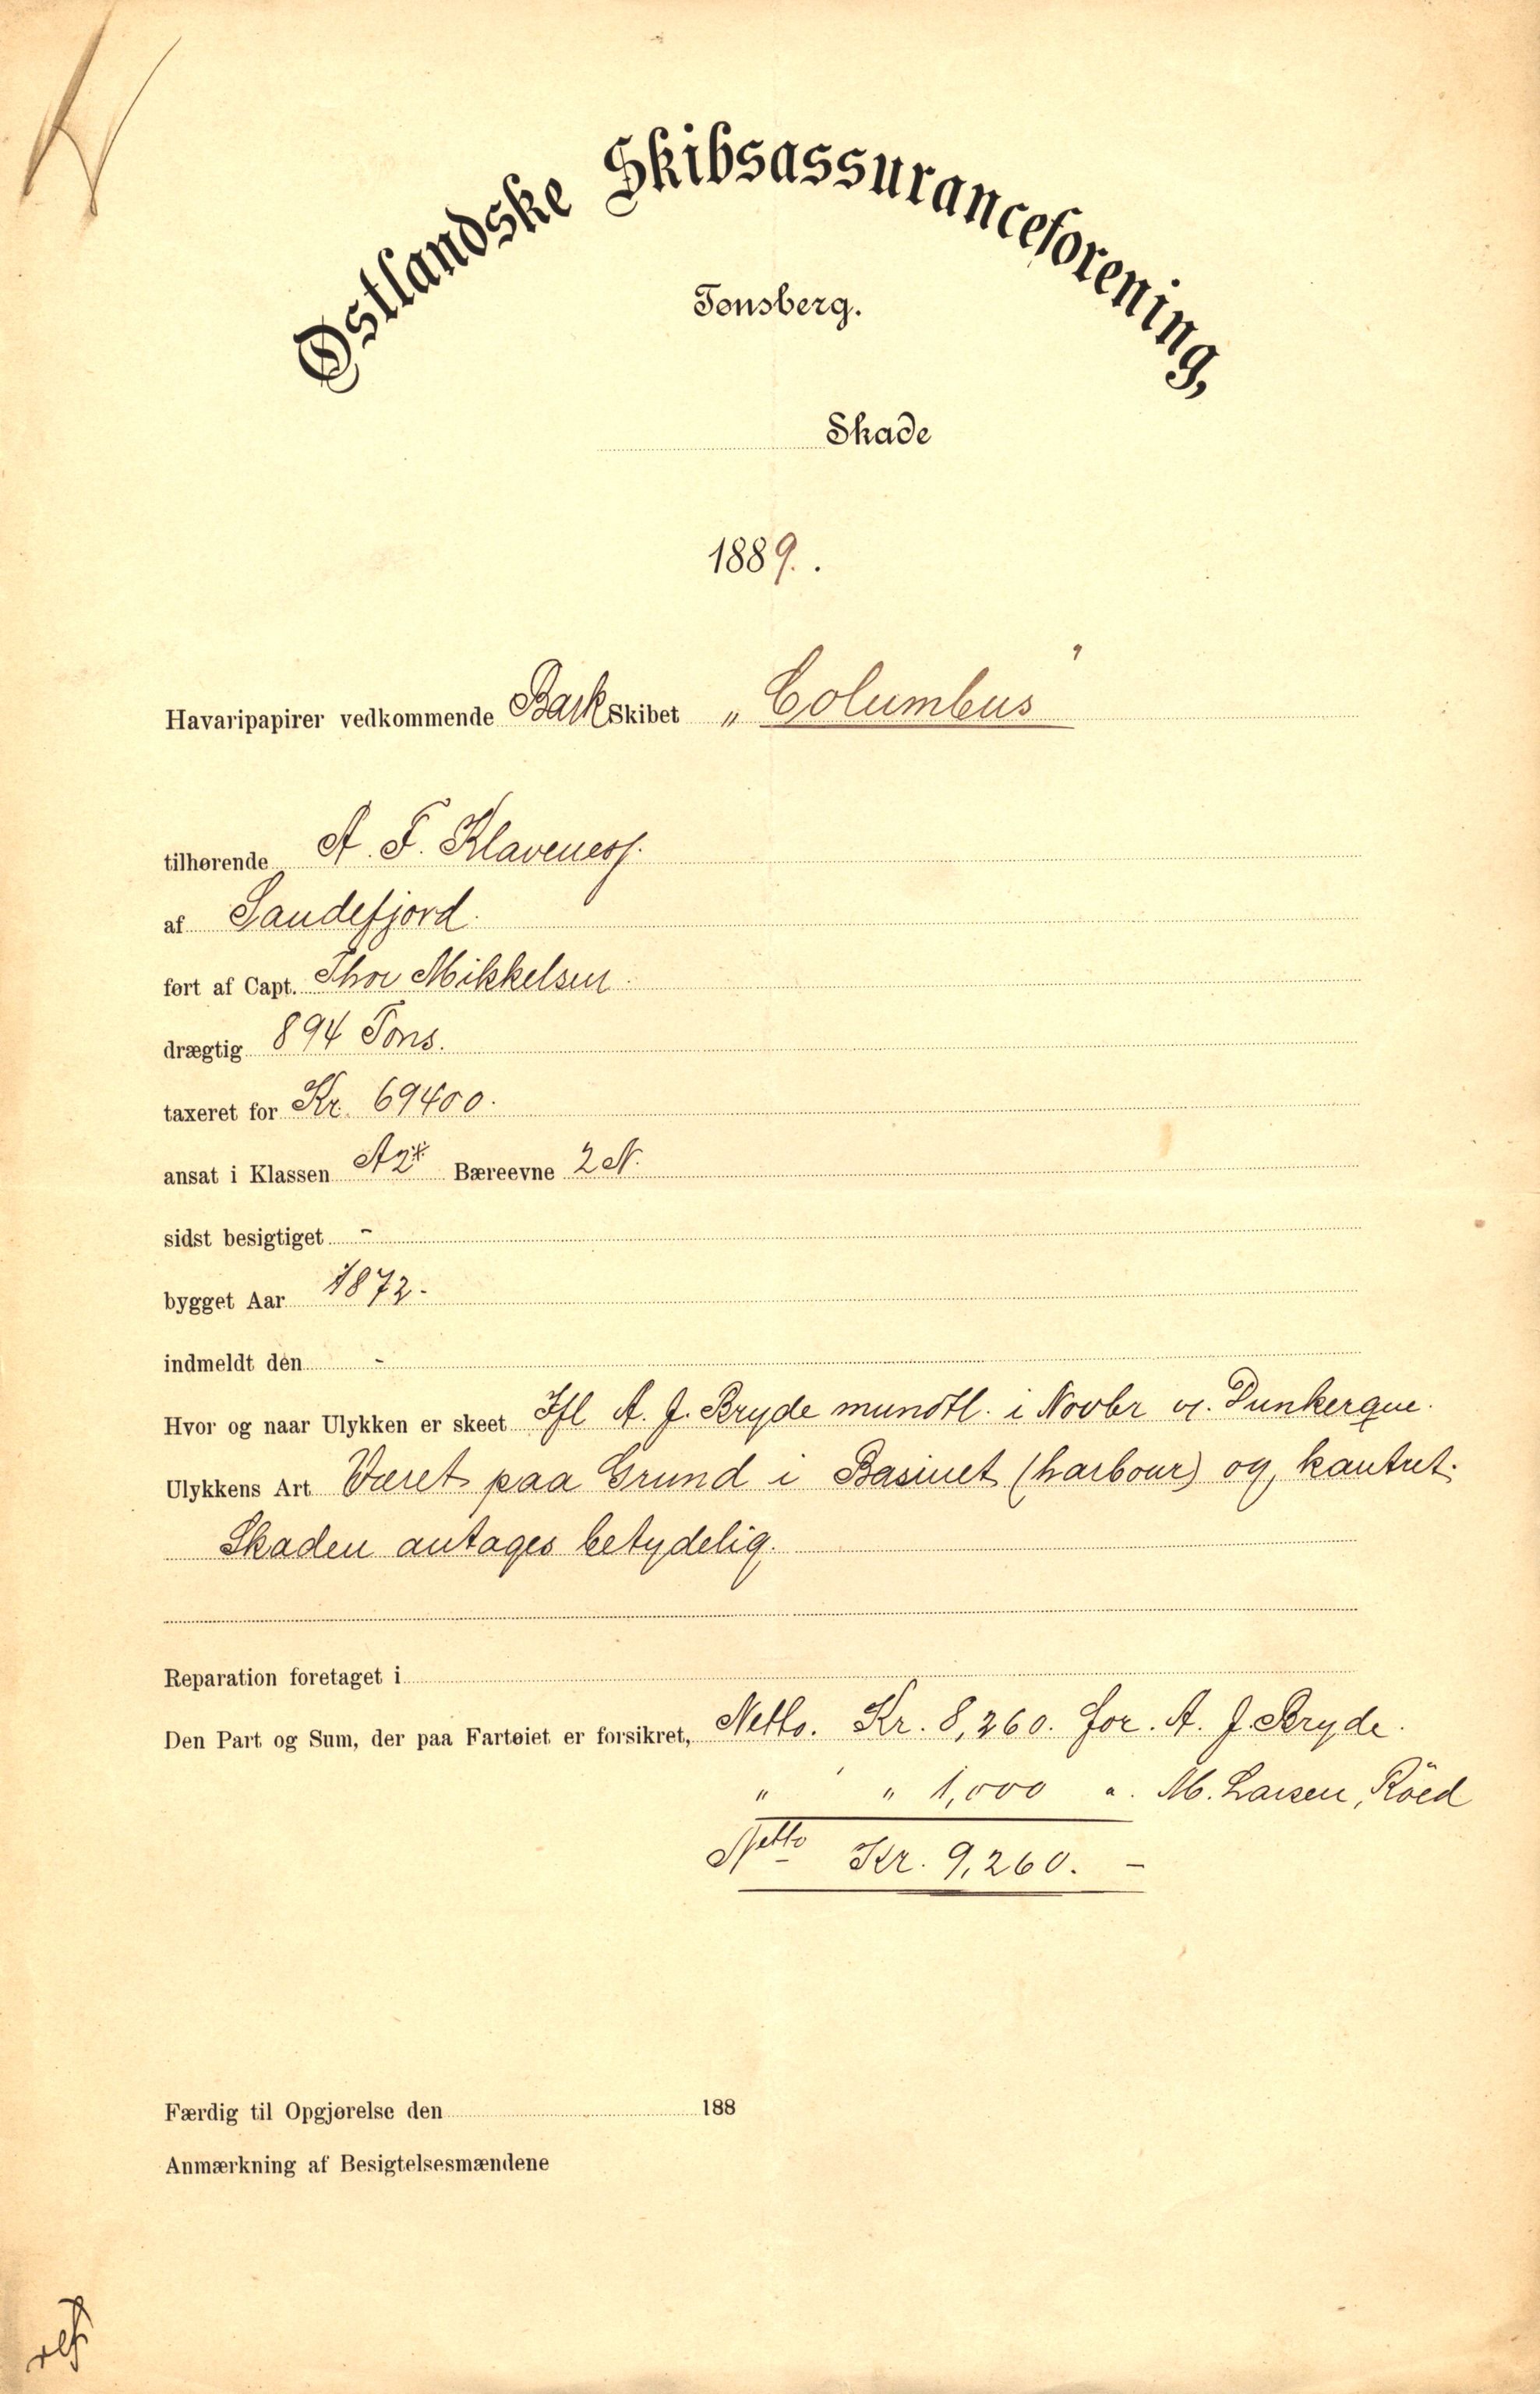 Østlandske Skibsassuranceforening,
Tønsberg.
Skade
1889. .
Havaripapirer vedkommende Bark Skibet „Columbus"
tilhørende A. F. Klaveness.
af Sandefjord.
ført af Capt. Thor Mikkelsen.
drægtig 894 Tons.
taxeret for Kr. 69400.
ansat i Klassen A2* Bæreevne 2 N.
sidst besigtiget -
bygget Aar 1872-
indmeldt den -
Hvor og naar Ulykken er skeet Ifl A. J. Bryde mundtl. i Novbr v. Dunkerque.
Ulykkens Art Været paa Grund i Basinet (harbour) og kantret.
Skaden antages betydelig.
Reparation foretaget i
Den Part og Sum, der paa Fartøiet er forsikret, Netto. Kr. 8,260. for. A. J. Bryde.
" " 1,000 ". M. Larsen, Röed
Netto Kr. 9,260. -
Færdig til Opgjørelse den 188
Anmærkning af Besigtelsesmændene